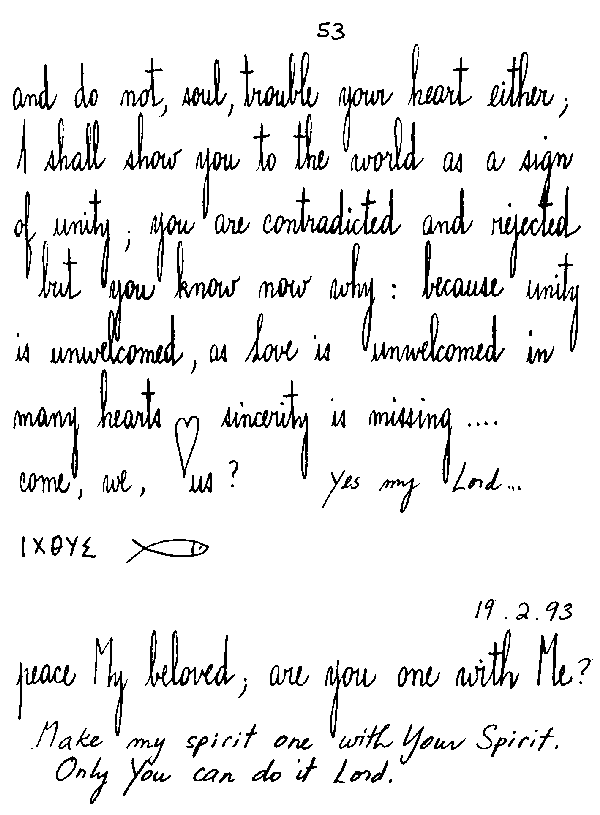 53
and do not, soul, trouble your heart either;
I shall show you to the world as a sign
of unity; you are contradicted and rejected
but you know now why: because unity
is unwelcomed, as Love is unwelcomed in
many hearts sincerity is missing ....
come, we, us? Yes my Lord...
ΙΧΘΥΣ
19.2.93
peace My beloved; are you one with Me?
Make my spirit one with Your Spirit.
Only You can do it Lord.